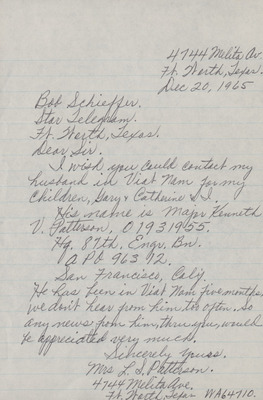 4744 Melita Av.
Ft. Worth, Texas.
Dec 20, 1965
Bob Schieffer.
Star Telegram.
Ft. Worth, Texas.
Dear Sir.
I wish you could contact my
husband in Viat Nam for my
Children, Gary & Catherine &I.
His name is Major Kenneth
V. Patterson, 01931955.
Hq. 87th. Engr. Bn.
APO 96312.
San Francisco, Caly.
He has been in Viat Nam five months,
we don't hear from him too often. So
any news from him, thru you, would
be appreciated very much.
Sincerely yours.
Mrs Patterson.
4744 Melita Ave.
Ft. Worth, Texas WA64710.